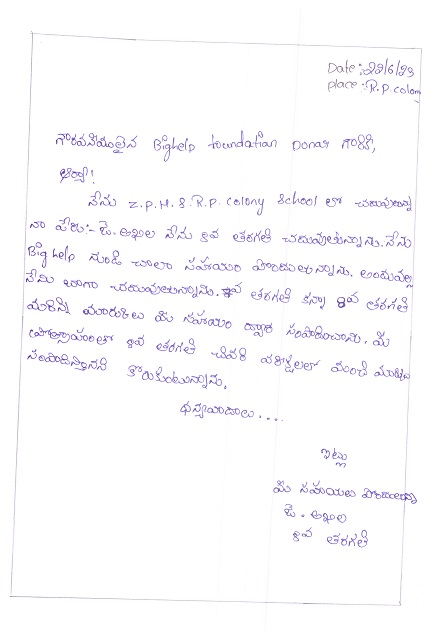 Date :- 22/6/23
place :- R.p colony
గౌరవనీయులైన Bighelp foundation Donar గారికి,
ఆర్యా!
నేను Z.P.H.S. R.P. colony school లో చదువుతున్నా
నా పేరు:- జె. అఖిల నేను 8వ తరగతి చదువుతున్నాను. నేను
Big help నుండి చాలా సహాయం పొందుతున్నాను. అందువల్ల
నేను బాగా చదువుతున్నాను. 7వ తరగతి కన్నా 8వ తరగతి
మరిన్ని మార్కులు మీ సహాయం ద్వారా సంపాదించాను. మీ
ప్రోత్సాహంతో 8వ తరగతి చివరి పరీక్షలలో మంచి మార్కులు
సంపాదిస్తానని కోరుకుంటున్నాను.
ధన్యవాదాలు....
ఇట్లు
మీ సహాయం పొందుతున్నా
జె. అఖిల
8వ తరగతి